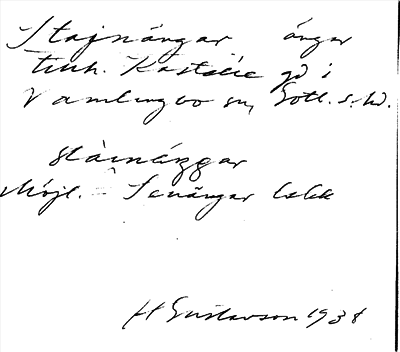 Stajnängar ängar
tillh. Kastäle gd i
Vamlingbo sn, Gotl. s. hd.
stàinäŋgar
Möjl. = Stenängar
H Gustavson 1938